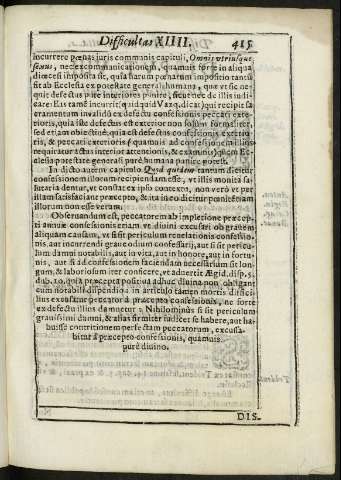 Difficultas XIIII. 415
incurrere pœnas iuris communis capituli, Omnis vtriusque
sexus, nec excommunicationem, quamuis forte in aliqua
diœcesi imposita sit, quia harum pœnarum impositio tantũ
fit ab Ecclesia ex potestate generali humana, quæ vt sic ne-
quit defectus pure interiores punire, sicut nec de illis iudi-
care: Eas tamẽ incurrit, quidquid Vazq. dicat, qui recipit sa-
cramentum inualidũ ex defectu confessionis peccati exte-
rioris, quia iste defectus est exterior non solum formaliter,
sed etiam obiectiuè, quia est defectus confessionis exterio-
ris, & peccati exterioris, & quamuis ad confessionem illius
requiratur actus interior attentionis, & examinis, quem Ec-
clesia potestate generali purè humana punire potest.
In dicto autem capitulo Quod quidem tantum dicitur
confessionem illorum recipiendam esse, vt illis monita sa-
lutaria dentur, vt constat ex ipso contextu, non verò vt per
illam satisfaciant præcepto, & ita in eo dicitur pœnitentiam
illorum non esse veram.
Obseruandum est, peccatorem ab impletione præcep-
ti annuæ confessionis etiam vt diuini excusari ob grauem
aliquam causam, vt si sit periculum reuelationis confessio-
nis, aut incurrendi graue odium confessarij, aut si sit pericu-
lum damni notabilis, aut in vita, aut in honore, aut in fortu-
nis, aut si ad confessionem faciendam necessarium sit lon-
gum, & laboriosum iter conficere, vt aduertit Ægid. disp. 5.
dub. 10. quia præcepta positiua adhuc diuina non obligant
cum notabili dispendio: in articulo tamen mortis difficil-
lius excusatur peccator à præcepto confessionis, ne forte
ex defectu illius damnetur; Nihilominus si sit periculum
grauissimi damni, & alias firmiter iudicet se habere, aut ha-
buisse contritionem perfectam peccatorum, excusa-
bitur à præcepto confessionis, quamuis
purè diuino.
DIS-